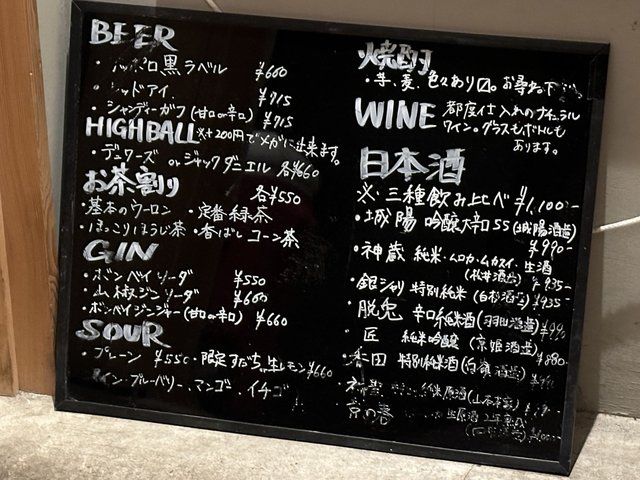 BEER
・サッポロ黒ラベル ¥660
・レッドアイ ¥715
・シャンディーガフ(甘口or辛口) ¥715
HIGHBALL ※+200円でメガに出来ます。
・デュワーズ orジャックダニエル 各¥660
お茶割り 各¥550
・基本のウーロン ・定番緑茶
・ほっこりほうじ茶 ・香ばしコーン茶
GIN
・ボンベイソーダ ¥550
・山椒ジンソーダ ¥660
・ボンベイジンジャー(甘口or辛口) ¥660
SOUR
・プレーン ¥550 ・限定すだち 生レモン ¥660
パイン・ブルーベリー、マンゴ、イチゴ
焼酎
・芋、麦、色々あり〼。お尋ね下さい。
WINE 都度仕入れのナチュラル
ワイン。グラスもボトルも
あります。
日本酒
※・三種飲み比べ ¥1,100-
・城陽 吟醸大辛口55(城陽酒造) ¥990-
・神蔵 純米・ムロカ・ムカスイ・生酒
(松井酒造) ¥935-
・銀シャリ 特別純米(白杉酒造) ¥935-
・脱兎 辛口純米酒(羽田酒造) ¥990
匠 純米吟醸 (京姫酒造) ¥880-
・香田 特別純米酒(白嶺酒造)
純米原酒(山本本家)
京の春 生原酒